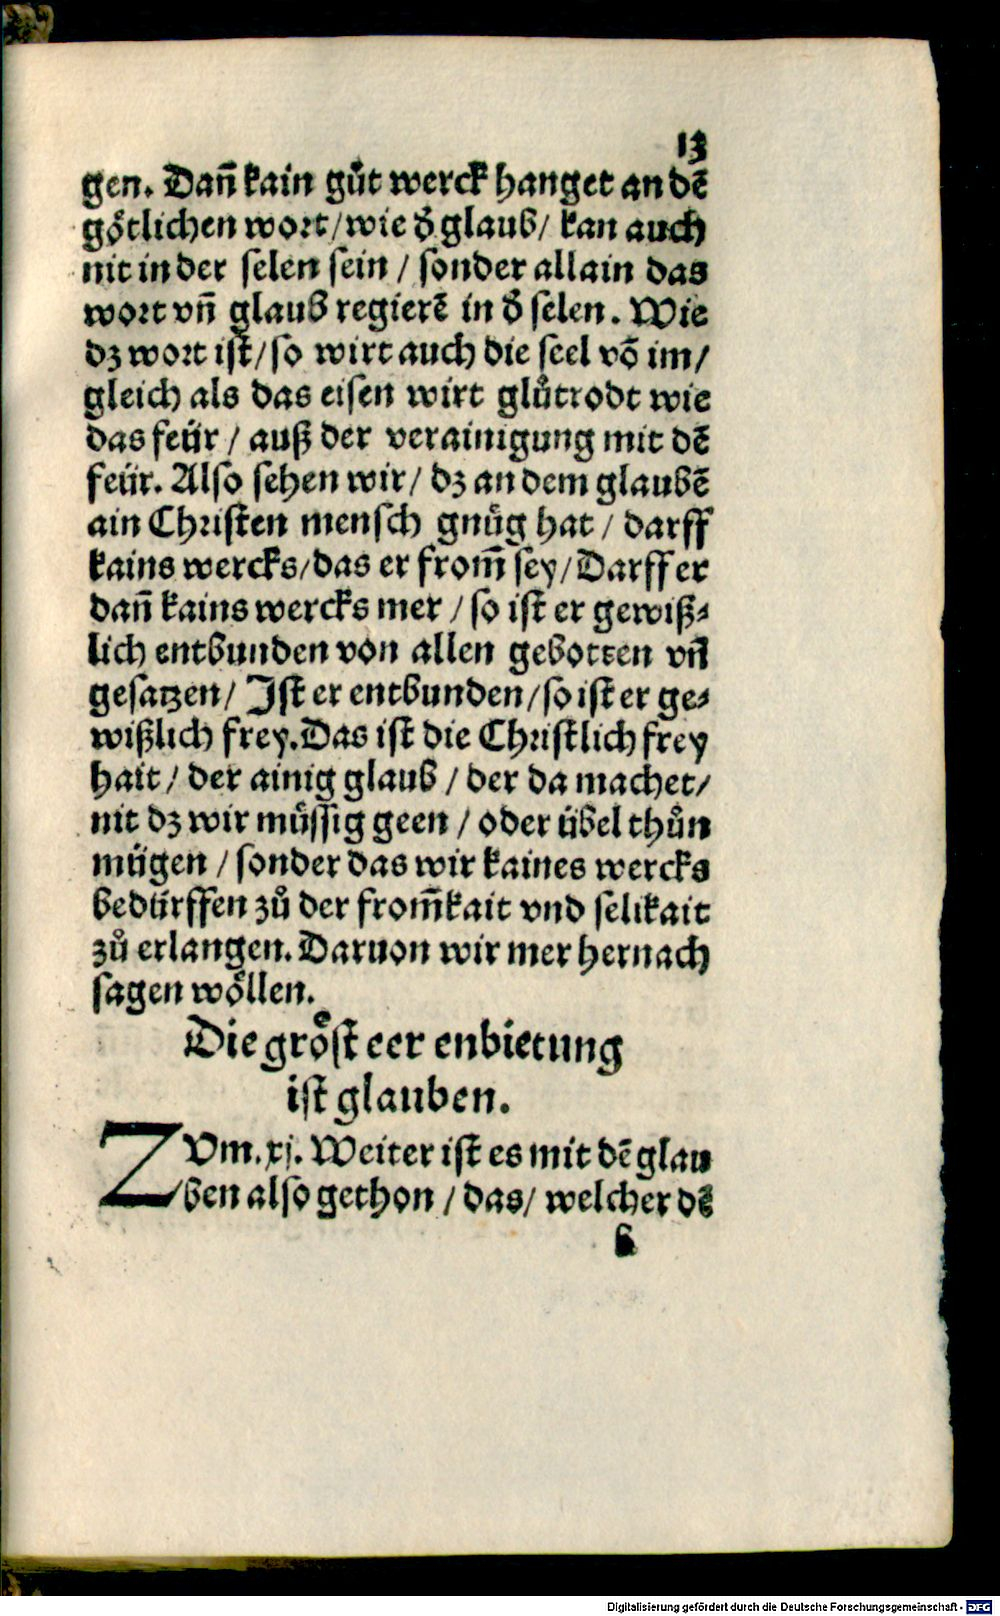 13
gen. Dañ kain gůt werck hanget an dē
götlichen wort / wie d̕ glaub / kan auch
nit in der selen sein / sonder allain das
wort vñ glaub regierē in d̕ selen. Wie
dz wort ist / so wirt auch die seel võ im /
gleich als das eisen wirt glůtrodt wie
das feür / auß der verainigung mit dē
feür. Also sehen wir / dz an dem glaubē
ain Christen mensch gnůg hat / darff
kains wercks / das er from̄ sey / Darff er
dañ kains wercks mer / so ist er gewiß⸗
lich entbunden von allen gebotten vñ
gesatzen / Ist er entbunden / so ist er ge⸗
wißlich frey. Das ist die Christlich frey
hait / der ainig glaub / der da machet /
nit dz wir müssig geen / oder übel thůn
mügen / sonder das wir kaines wercks
bedürffen zů der from̄kait vnd selikait
zů erlangen. Daruon wir mer hernach
sagen wöllen.
Die gröst eer enbietung
ist glauben.
ZVm. xj. Weiter ist es mit dē glau
ben also gethon / das / welcher dē
b
Digitalisierung gefördert durch die Deutsche Forschungsgemeinschaft - DFG